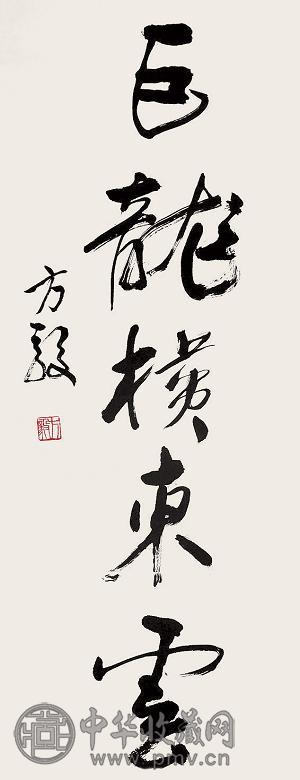 巨龍横東雲
方毅
方毅
中华收藏网
www.pmv.cn